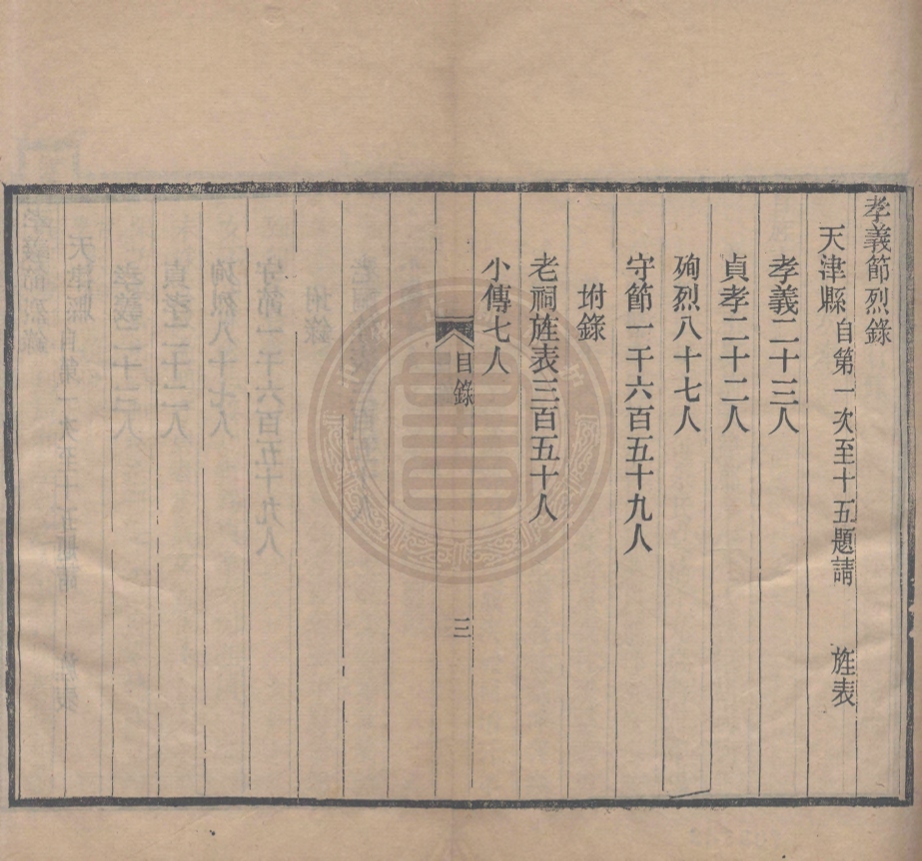 孝義節烈錄
天津縣自第一次至十五題請 旌表
孝義二十三人
貞孝二十二人
殉烈八十七人
守節一千六百五十九人
坿錄
老祠旌表三百五十人
小傳七人
目錄 三